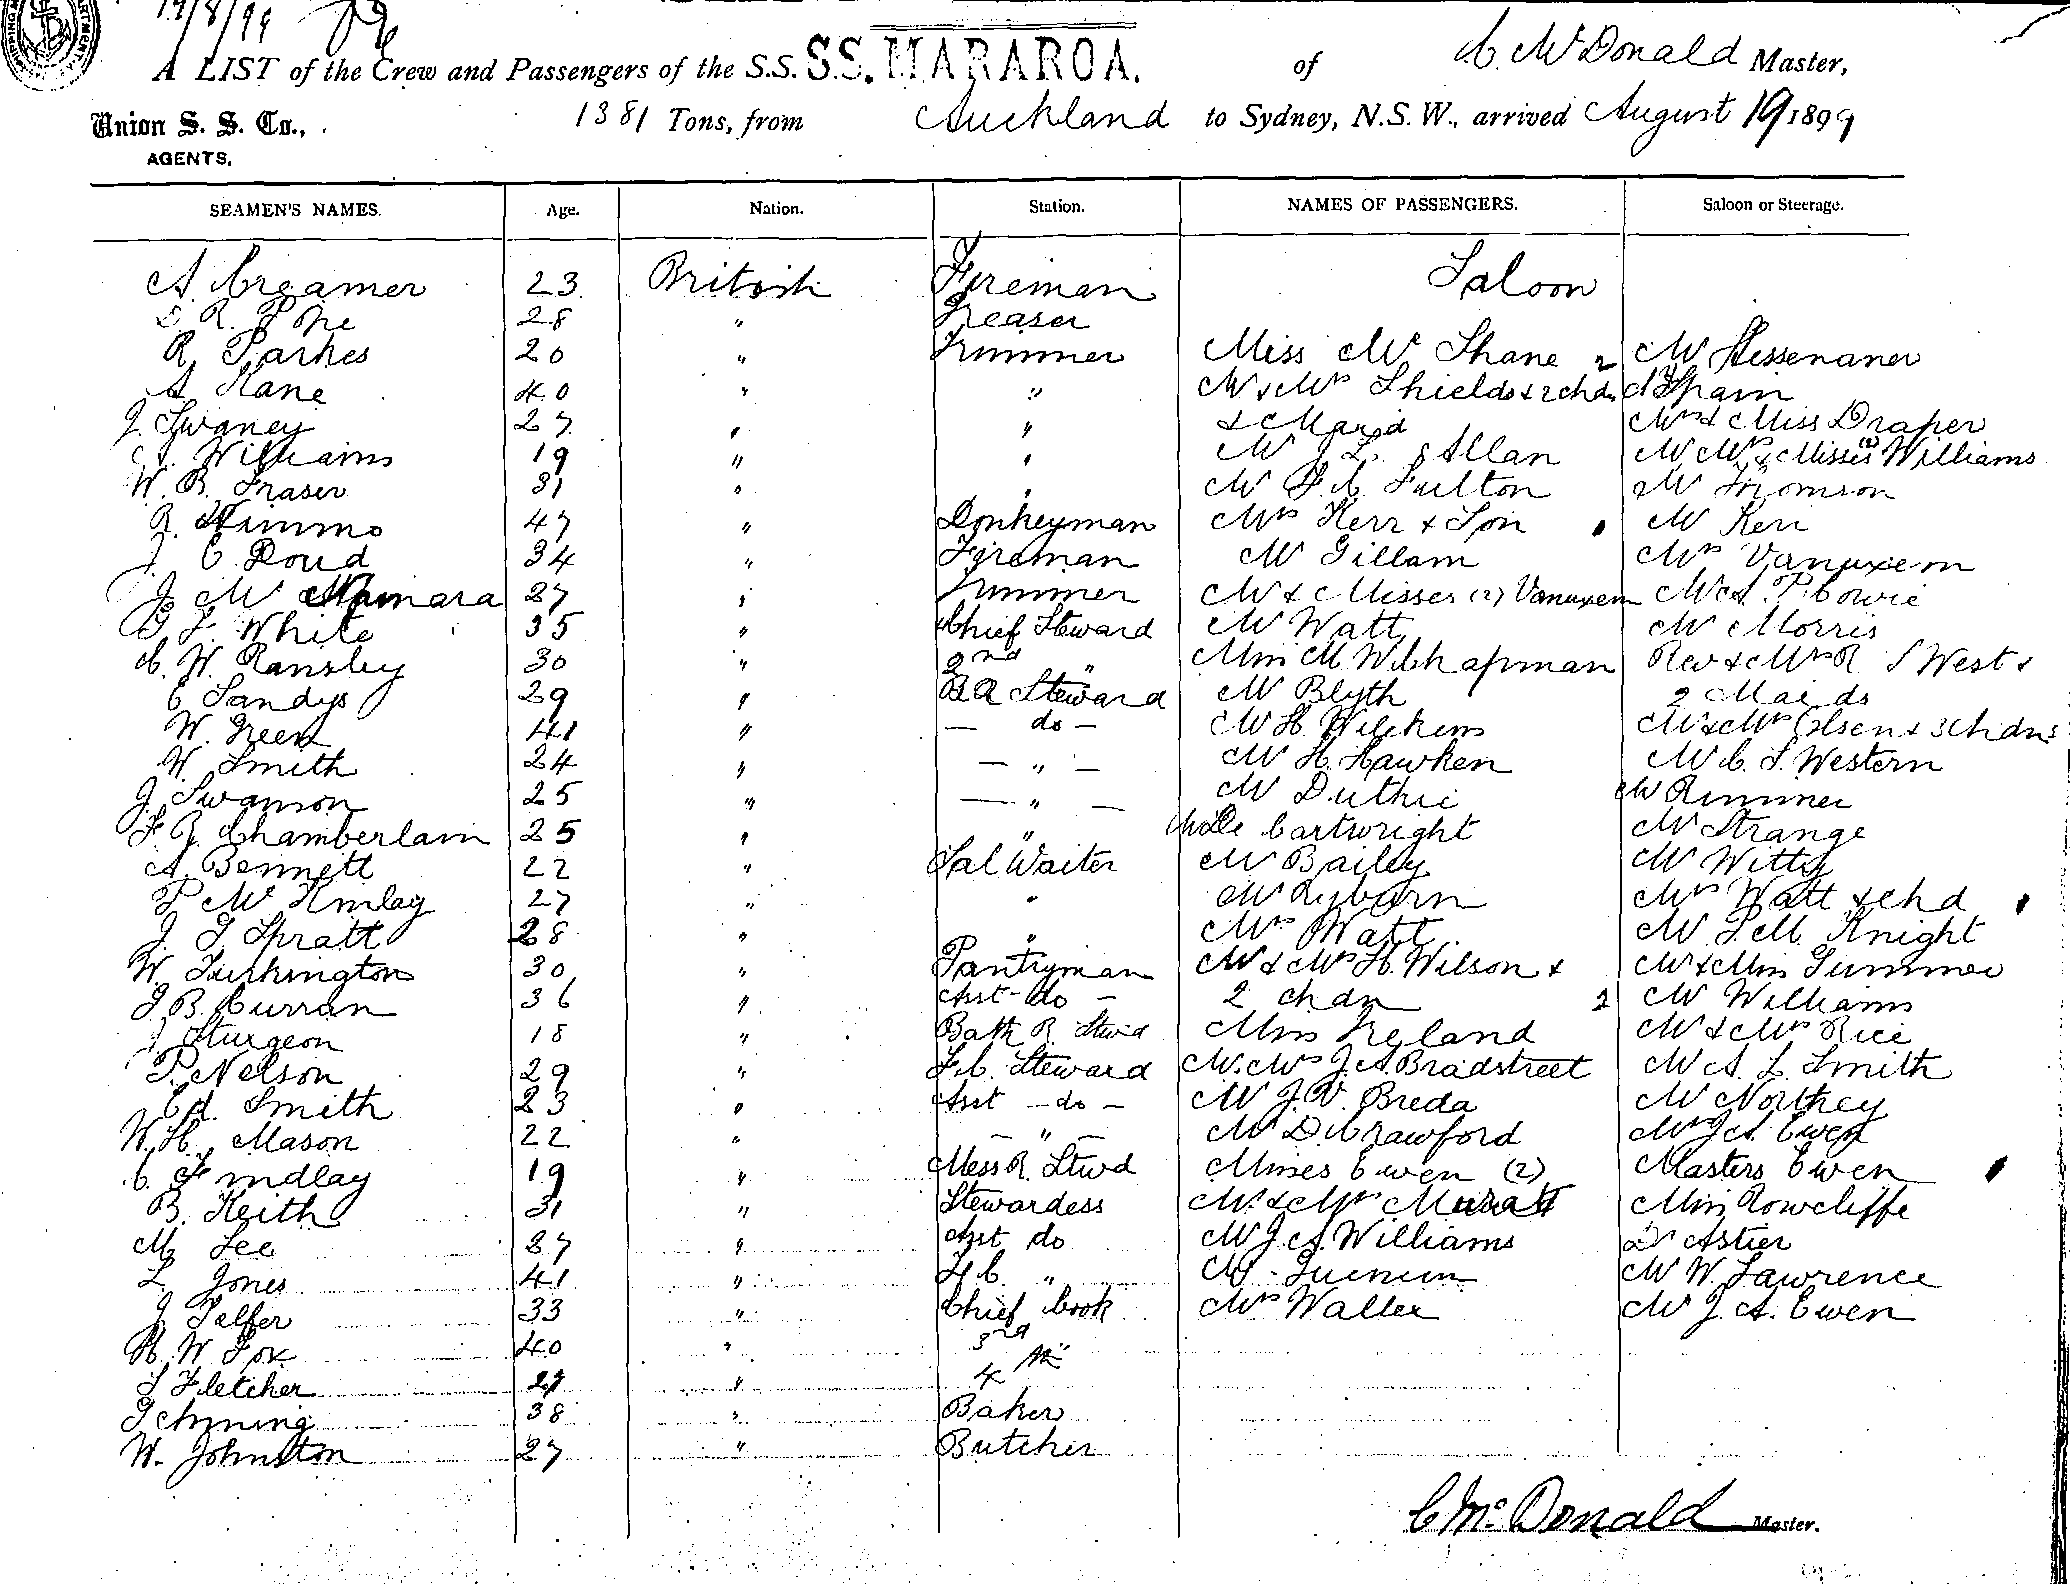 19/8/99
A LIST of the Crew and Passengers of the S.S. S.S. MARAROA. of C. McDonald Master,
Union S. S. Co., 1381 Tons, from Auckland to Sydney, N.S.W., arrived August 19 1899
AGENTS.
SEAMEN'S NAMES. Age. Nation. Station. NAMES OF PASSENGERS. Saloon or Steerage.
A. Creamer 23 British Fireman Saloon
R. 28 " Greaser
R. Parkes 20 " Trimmer Miss Mc Shane 2 Mr
A Kane 40 " " Mr & Mrs Shields & 2 chdn Spain
J. Swaney 27 " " & Maid Mrs & Miss Draper
Williams 19 " " Mr J. L. Allan Mr Mrs & Misses (2) Williams
W. B. Fraser 31 " " Mr F. C. Fulton Mr Thomson
R. Nimmo 47 " Donkeyman Mrs Kerr & Son Mr Kerr
J. C. Doud 34 " Fireman Mr Gillam Mrs Vanuxem
J Mc Namara 27 " Trimmer Mr & Misses (2) Vanuxem Mr A. P. Cowie
G F. White 35 " Chief Steward Mr Watt Mr Morris
C. W. Ransley 30 " 2nd " Miss M. W. Chapman Rev & Mrs R S West &
C Sandys 29 " B.R Steward Mr Blyth 2 Maids
W. Green 41 " — do — Mr H. Wilckens Mr & Mrs Olsen & 3 chdns
W. Smith 24 " — " — Mr H. Hawken Mr C. S. Western
J. Swanson 25 " — " — Mr Duthie Mr Rimmer
F. J. Chamberlain 25 " " Cartwright Mr Strange
A. Bennett 22 " Sal Waiter Mr Bailey Mr Witty
P Mc Kinlay 27 " " Mr Ryburn Mrs Watt & chd
J. G. Spratt 28 " " Mrs Watt Mr Knight
W. Turkington 30 " Pantryman Mr & Mrs H. Wilson & Mr & Miss
J. B. Curran 36 " Asst - do - 2 chdn 2 Mr Williams
J Sturgeon 18 " Bath R. Stwd Miss Ireland Mr & Mrs Rice
P. Nelson 29 " F.C. Steward Mr. Mrs J. A. Bradstreet Mr A. L. Smith
Smith 23 " Asst - do - Mr J. V. Breda Mr Northey
W. H. Mason 22 " — " — Mr D. Crawford Mrs J. A. Ewen
C. Findlay 19 " Mess R. Stwd Misses Ewen (2) Masters Ewen
B. Keith 31 " Stewardess Mr. & Mrs Miss Rowcliffe
M. Lee 27 " Asst do Mr J. A. Williams Dr Astier
L. Jones 41 " F.C. " Mr W. Lawrence
J Telfer 33 " Chief Cook Mrs Waller Mr J. A. Ewen
H. W. Fox 40 " 3rd "
S Fletcher 27 " 4th
38 " Baker
W. Johnston 27 " Butcher
C McDonald Master.